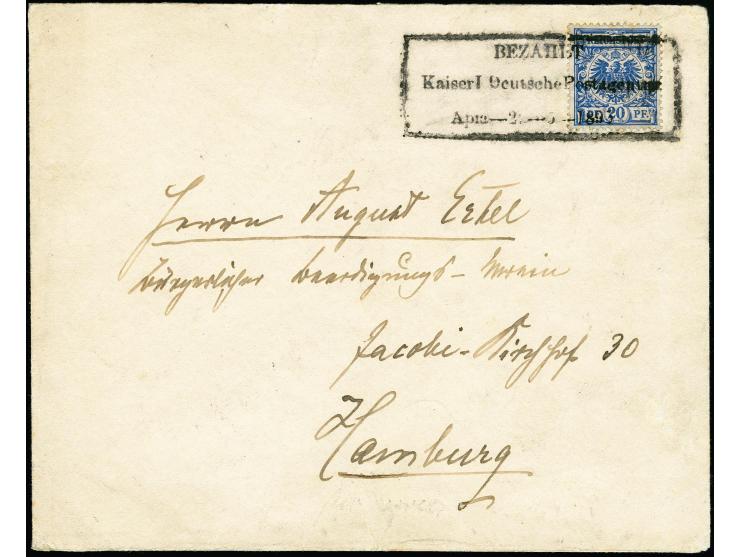 BEZAHLT
Kaiserl Deutsche Postagentur
Apia 1895
20 PF
Herrn August Ertel
Bürgerlicher Beerdigungs-Verein
Jacobi-Kirchhof 30
Hamburg